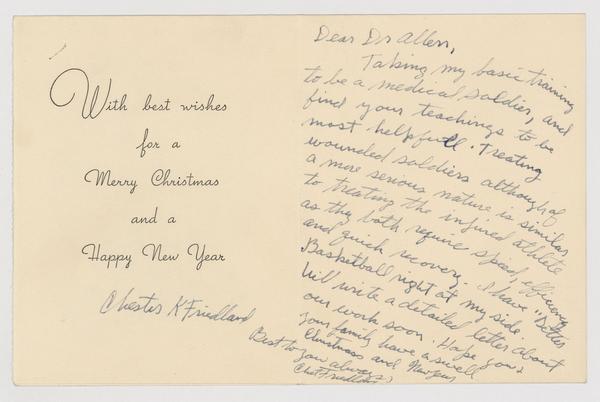 With best wishes
for a
Merry Christmas
and a
Happy New Year
Chester K Friedland
Dear Dr Allen,
Taking my basic training
to be a medical soldier, and
find your teachings to be
most helpfull. Treating
wounded soldiers although of
a more serious nature is similar
to treating the injured athlete
as they both require speed, efficiency
and quick recovery. I have "Better
Basketball right at my side.
Will write a detailed letter about
our work soon. Hope you &
your family have a swell
Christmas and New Year
Best to you always,
Chet Friedland